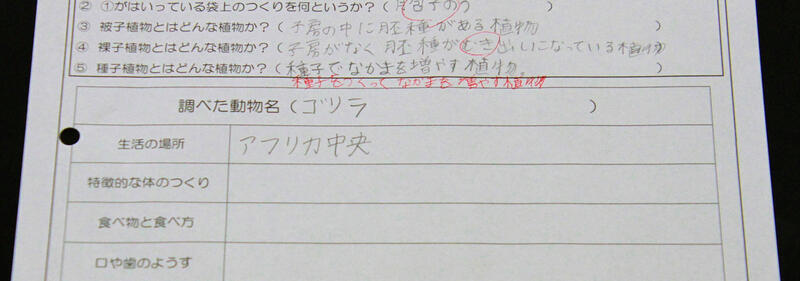 ② ①がはいっている袋上のつくりを何というか？（ほう子のう）
③ 被子植物とはどんな植物か？（子房の中に胚種がある植物
④ 裸子植物とはどんな植物か？（子房がなく胚種がむき出しになっている植物
⑤ 種子植物とはどんな植物か？（種子でなかまを増やす植物。
種子をつくってなかまを増やす植物
調べた動物名（ゴリラ）
生活の場所 アフリカ中央
特徴的な体のつくり
食べ物と食べ方
口や歯のようす